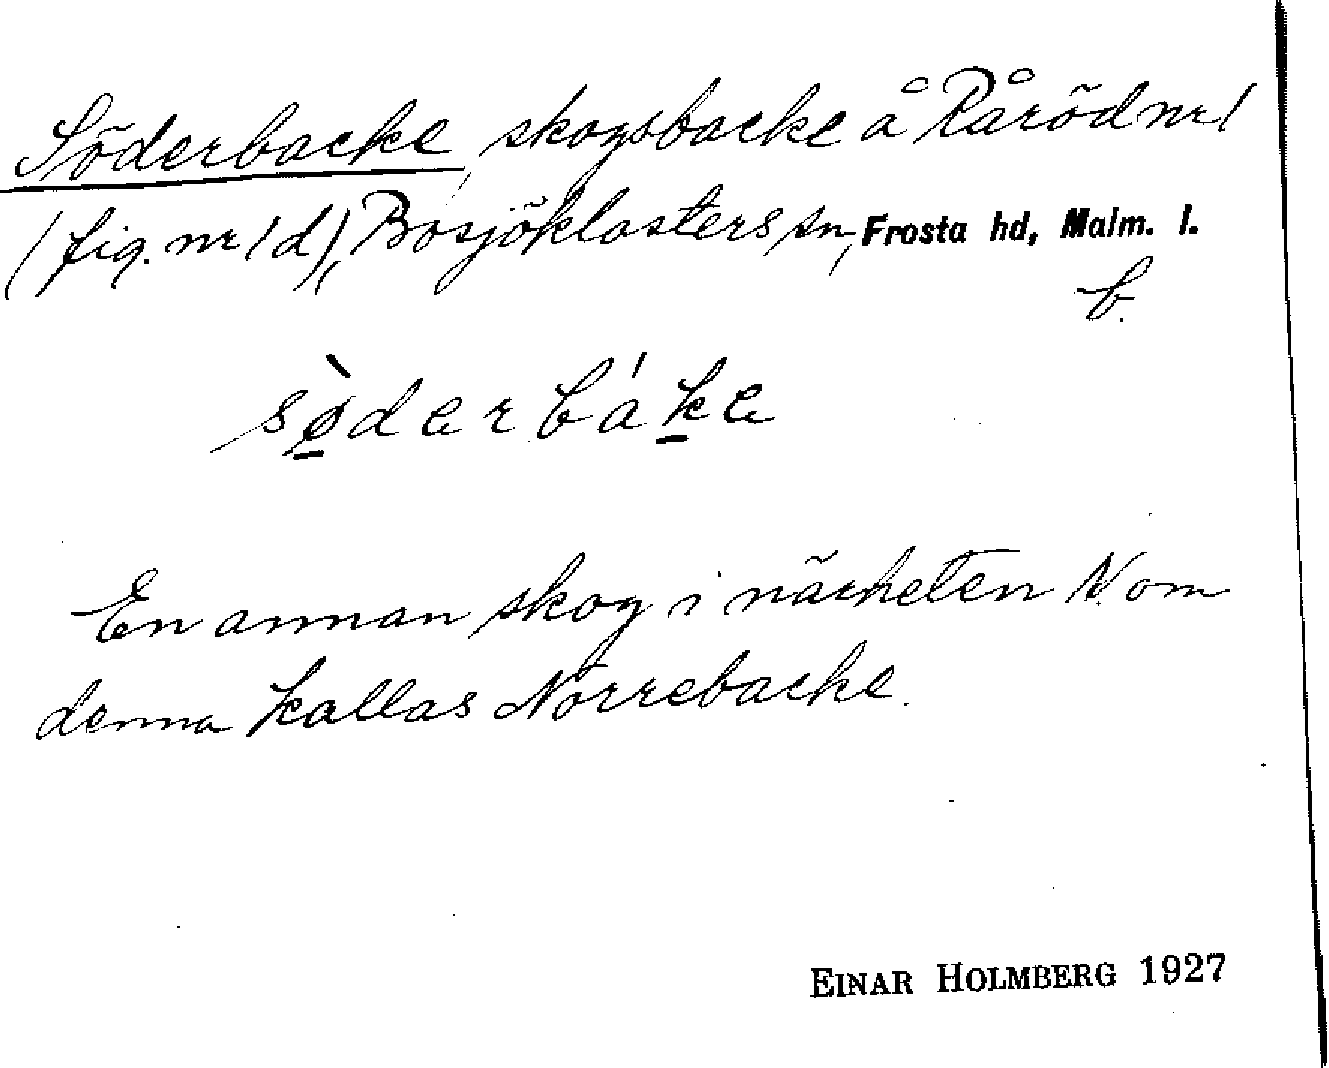 Söderbacke, skogsbacke å Råröd nr 1
(fig. nr 1 d), Bosjöklosters sn, Frosta hd, Malm. l.
b.
sø̀derbáke
En annan skog i närheten N. om
denna kallas Norrebacke.
EINAR HOLMBERG 1927